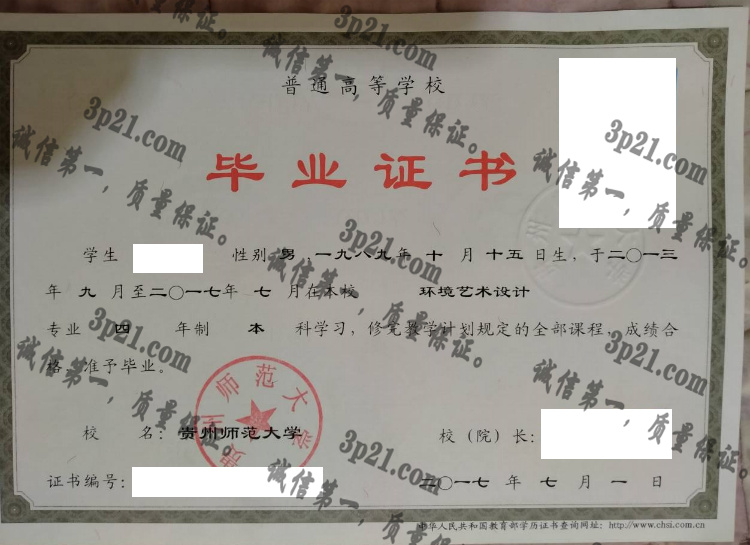 普通高等学校
毕业证书
学生 性别 男 ,一九八九年 十 月 十五 日生，于二〇一三
年 九 月至二〇一七年 七 月在本校 环境艺术设计
专业 四 年制 本 科学习，修完教学计划规定的全部课程，成绩合
格，准予毕业。
校 名：贵州师范大学
校（院）长：
证书编号：
二〇一七 年 七 月 一 日
中华人民共和国教育部学历证书查询网址：http://www.chsi.com.cn
贵州师范大学
3p21.com
诚信第一，质量保证。
3p21.com
诚信第一，质量保证。
3p21.com
诚信第一，质量保证。
3p21.com
诚信第一，质量保证。
3p21.com
诚信第一，质量保证。
3p21.com
诚信第一，质量保证。
3p21.com
诚信第一，质量保证。
3p21.com
诚信第一，质量保证。